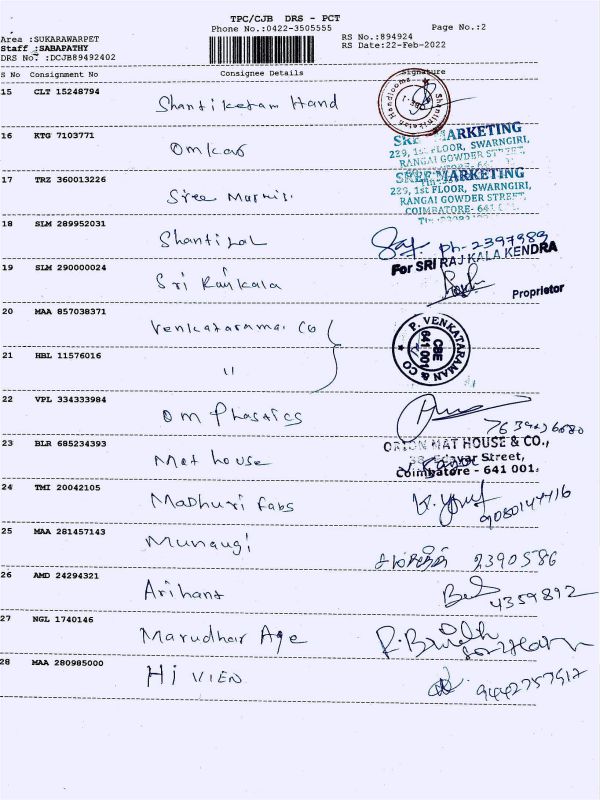 TPC/CJB DRS - PCT
Area :SUKARAWARPET Phone No.:0422-3505555 Page No.:2
Staff :SABAPATHY RS No.:894924
DRS No. :DCJB89492402 RS Date:22-Feb-2022
S No Consignment No Consignee Details Signature
15 CLT 15248794 Shantiketam Hand
Shantiniketan Handlooms
16 KTG 7103771 Omkar
SREE MARKETING
229, 1st FLOOR, SWARNGIRI,
RANGAI GOWDER STREET,
17 TRZ 360013226 Sree Marketi.
SREE MARKETING
229, 1st FLOOR, SWARNGIRI,
RANGAI GOWDER STREET,
COIMBATORE- 641
18 SLM 289952031 Shantilal
ph- 2397989
19 SLM 290000024 Sri Rajkala
For SRI RAJ KALA KENDRA
Proprietor
20 MAA 857038371 Venkatarama. Co
P. VENKATARAMAN & CO
CBE
641 001
21 HBL 11576016 "
22 VPL 334333984 Om Plastics
23 BLR 685234393 Mat house
ORION MAT HOUSE & CO.,
Street,
Coimbatore - 641 001.
24 TMI 20042105 Madhuri fabs
9080147716
25 MAA 281457143 Munaugi
2390586
26 AMD 24294321 Arihant
4359892
27 NGL 1740146 Marudhar Age
28 MAA 280985000 Hi VIEN
9442757917